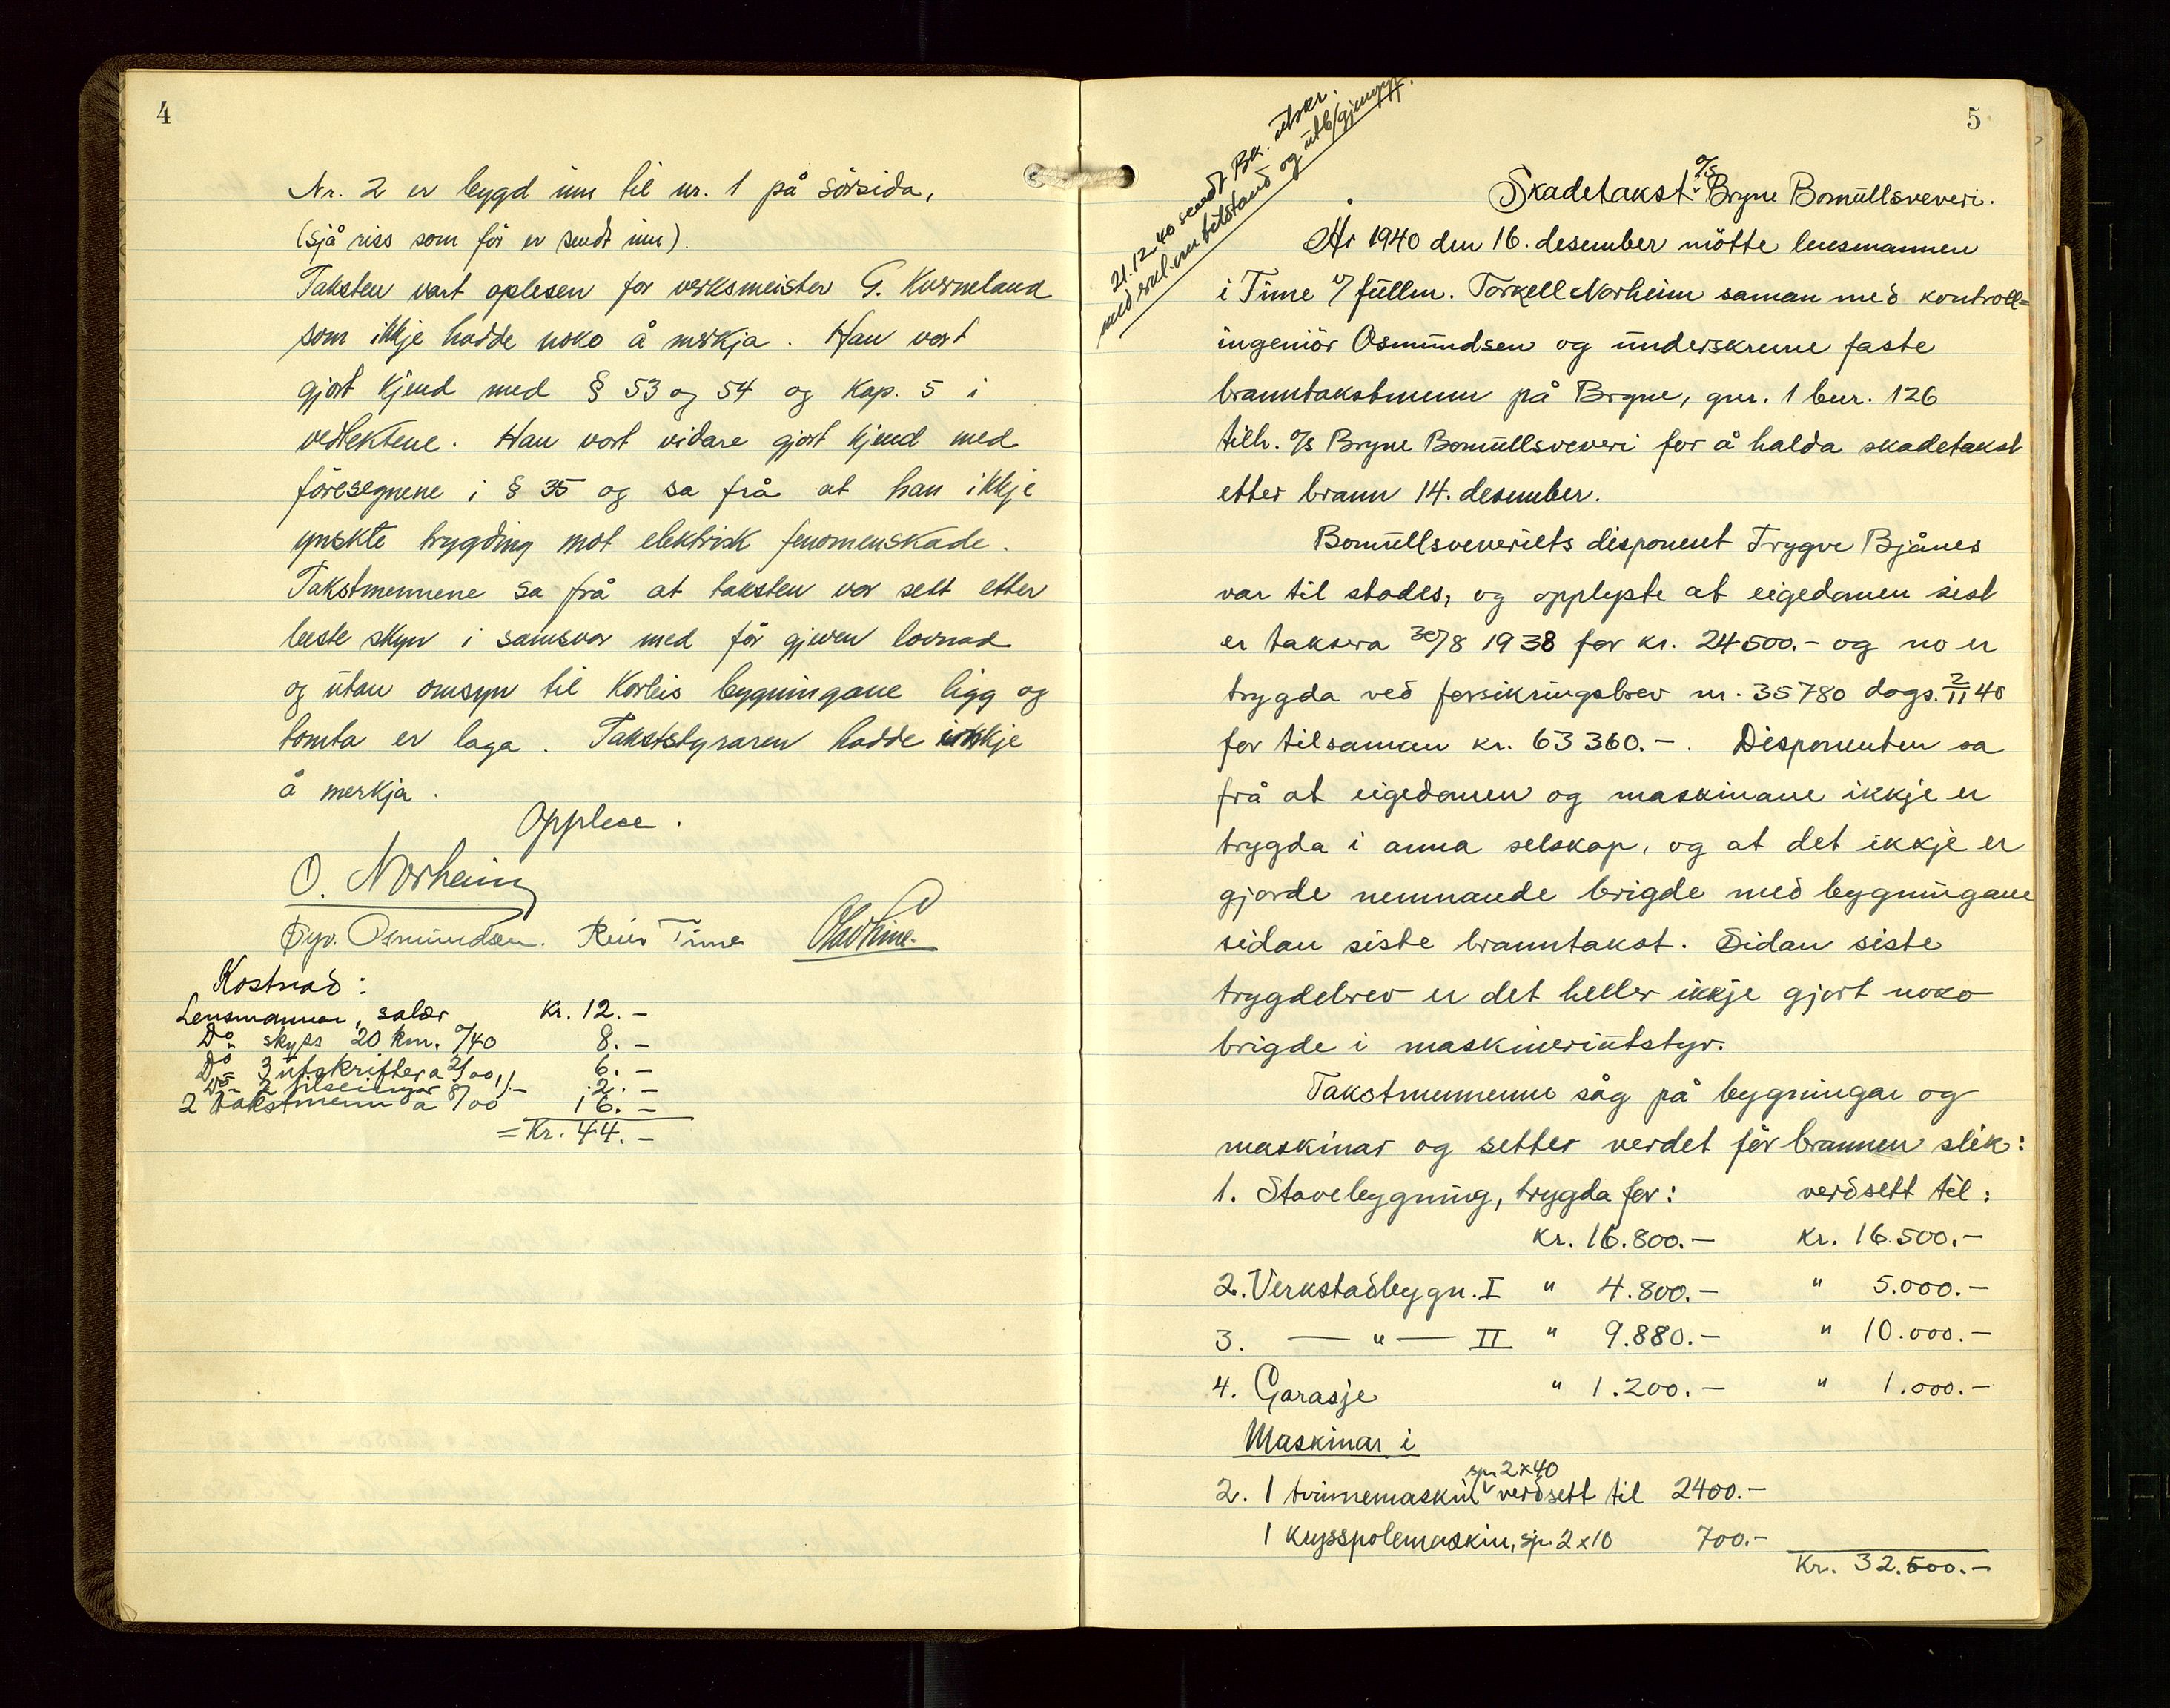 4
Nr. 2 er bygd inn til nr. 1 på sörsida,
(sjå riss som för er sendt inn).
Taksten vart oplesen for verksmeister G. Kverneland
som ikkje hadde noko å merkja. Han vart
gjort kjend med § 53 og 54 og kap. 5 i
vedtektene. Han vart vidare gjort kjend med
föresegnene i § 35 og sa frå at han ikkje
ynskte trygding mot elektrisk fenomenskade.
Takstmennene sa frå at taksten var sett etter
beste skyn i samsvar med för gjeven lovnad
og utan omsyn til korleis bygningane ligg og
tomta er laga. Takststyraren hadde ikkje
å merkja.
Opplese.
O. Norheim
Osmundsen. Reier Time Olav Time.
Kostnad:
Lensmannen, salær Kr. 12.-
Do skyss 20 km. 0/40 8.-
Do 3 utskrifter a 2/00 6.-
Do 2 tilseiingar 1/- 2.-
2 Takstmenn a 8/00 16.-
= Kr. 44.-
5
21.12.40 sendt Bk. utskr.
med skl. om tilstand og utb/gjenopp.
Skadetakst A/S Bryne Bomullsveveri.
År 1940 den 16. desember mötte lensmannen
i Time v/ fullm. Torkell Norheim saman med kontroll=
ingeniör Osmundsen og underskrevne faste
branntakstmenn på Bryne, gnr. 1 bnr. 126
tilh. A/S Bryne Bomullsveveri for å halda skadetakst
etter brann 14. desember.
Bomullsveveriets disponent Trygve Bjånes
var til stades, og opplyste at eigedomen sist
er taksera 30/8 1938 for kr. 24500.- og no er
trygda ved forsikringsbrev nr. 35780 dags. 2/11 40
for tilsaman kr. 63360.-. Disponenten sa
frå at eigedomen og maskinane ikkje er
trygda i anna selskap, og at det ikkje er
gjorde nemnande brigde med bygningane
sidan siste branntakst. Sidan siste
trygdebrev er det heller ikkje gjort noko
brigde i maskineriutstyr.
Takstmennene såg på bygningar og
maskinar og setter verdet för brannen slik:
1. Stovebygning, trygda for: verdsett til:
Kr. 16.800.- Kr. 16.500.-
2. Verkstadbygn. I " 4.800.- " 5.000.-
3. — " — II " 9.880.- " 10.000.-
4. Garasje " 1.200.- " 1.000.-
Maskinar i
2. 1 tvinnemaskin sp. 2x40 verdsett til 2400.-
1 krysspolemaskin, sp. 2x10 700.-
Kr. 32.500.-